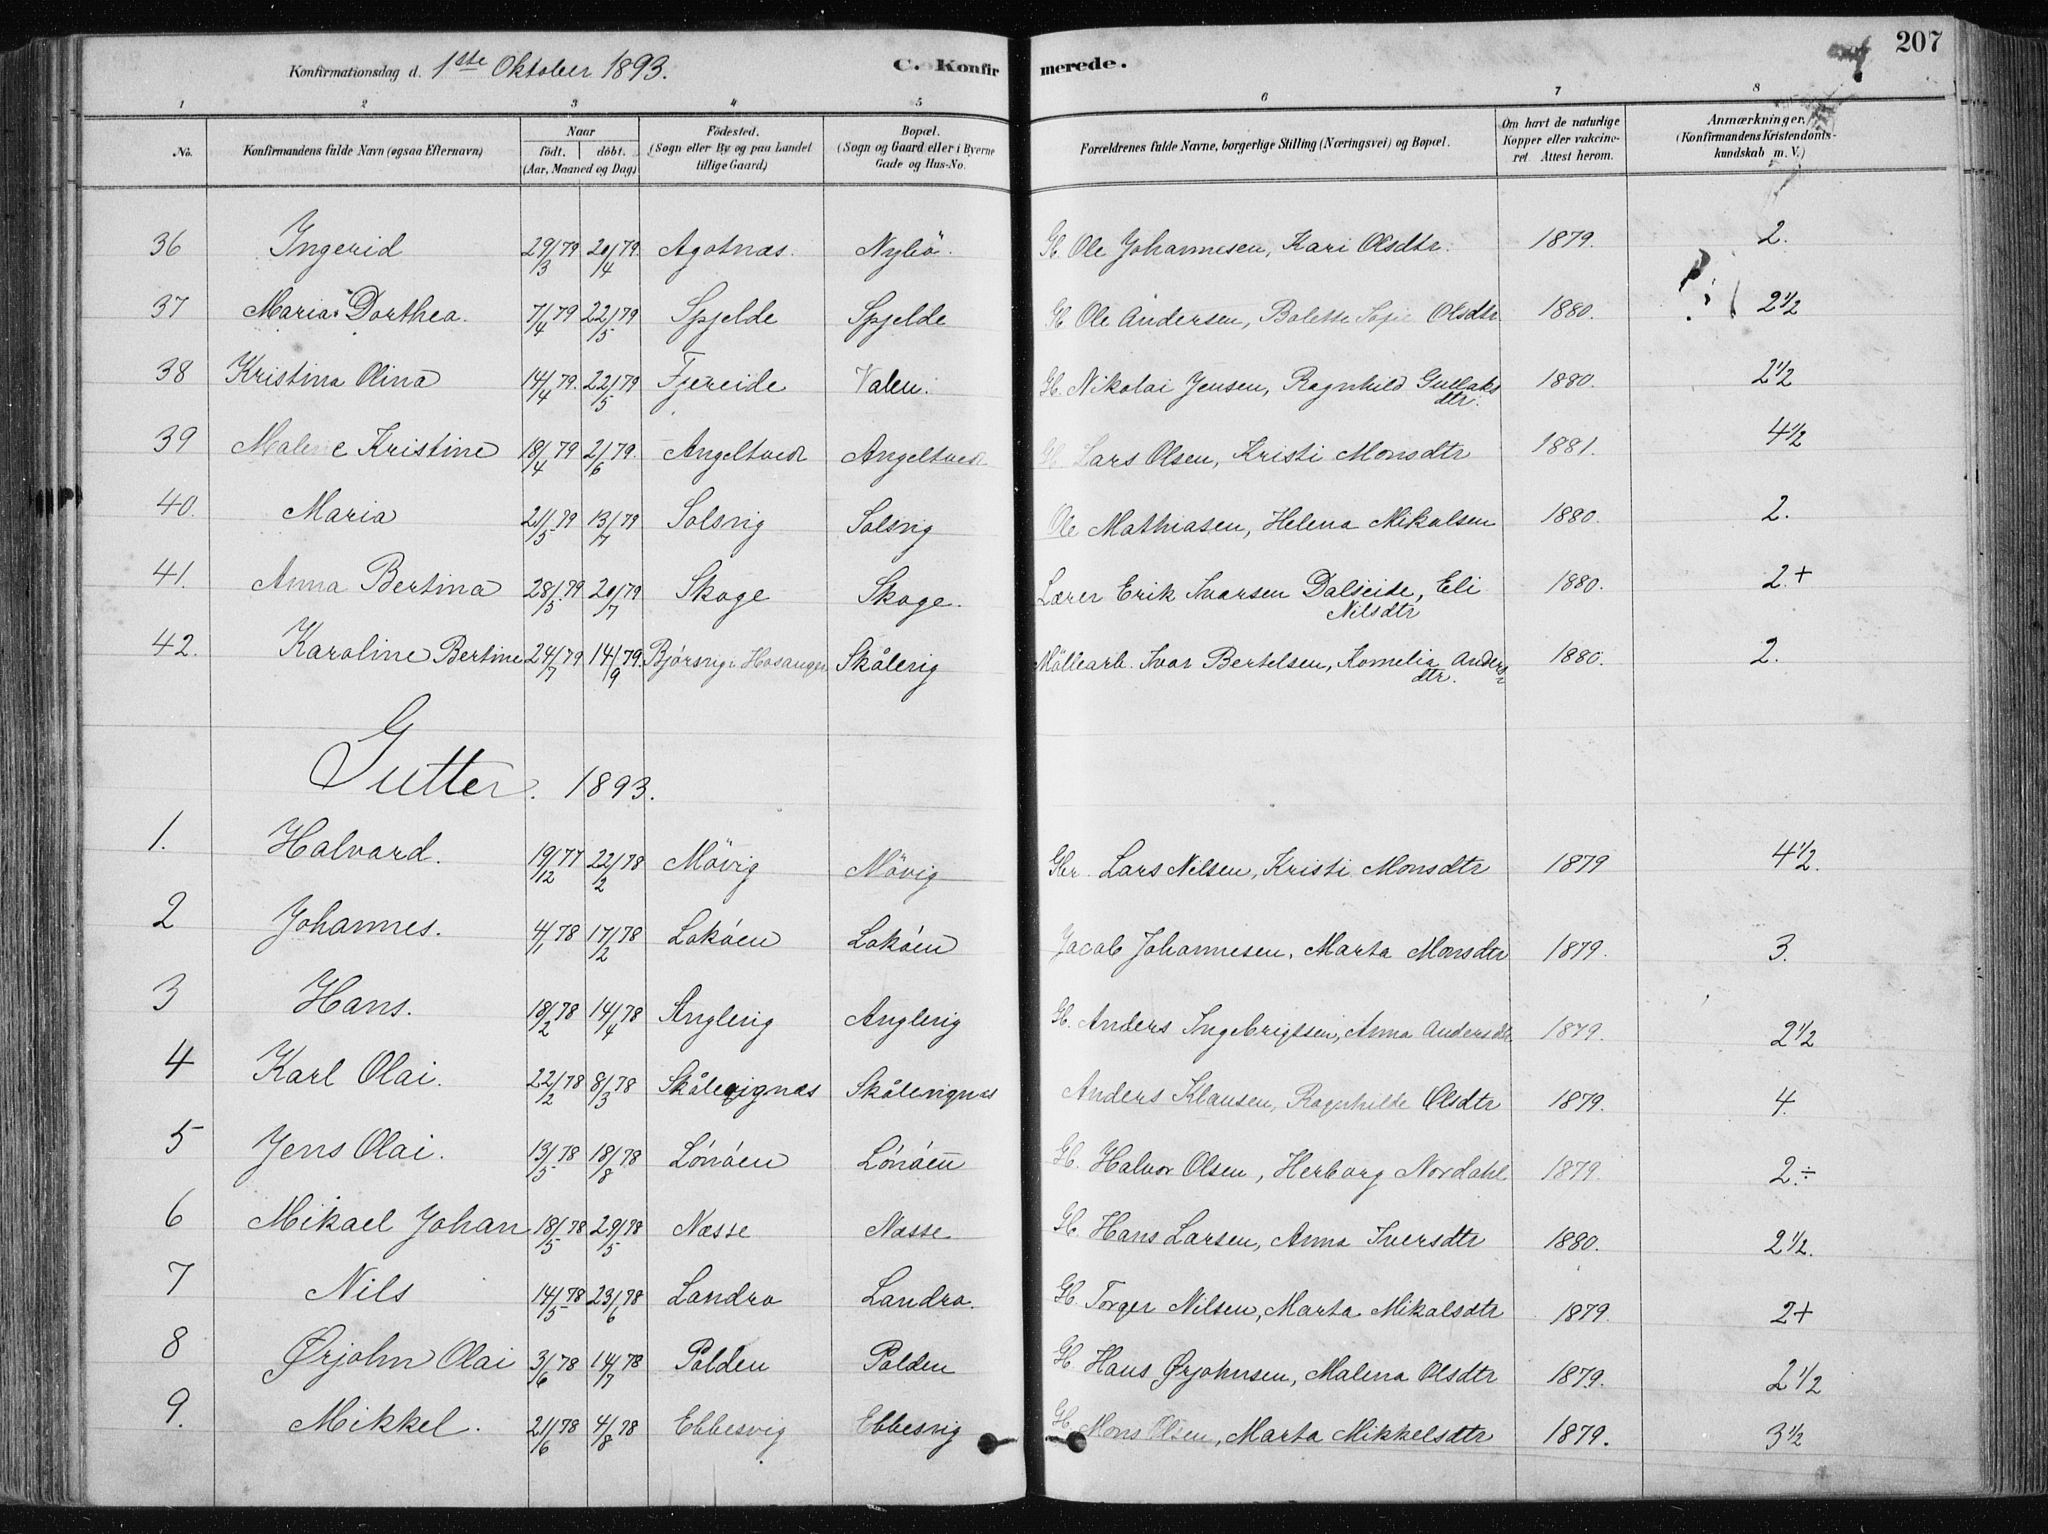 207
Konfirmationsdag d. 1ste Oktober 1893. C. Konfirmerede.
1 2 3 4 5 6 7 8
No. Konfirmandens fulde Navn (ogsaa Efternavn) Naar födt. döbt. (Aar, Maaned og Dag) Födested. (Sogn eller By og paa Landet tillige Gaard) Bopæl. (Sogn og Gaard eller i Byerne Gade og Hus-No. Forældrenes fulde Navne, borgerlige Stilling (Næringsvei) og Bopæl. Om havt de naturlige Kopper eller vakcineret Attest herom. Anmærkninger. (Konfirmandens Kristendomskundskab m. V.)
36 Ingerid 29/3 79 20/4 79. Agotnæs. Nybö. Gb. Ole Johannesen, Kari Olsdtr. 1879. 2.
37 Maria Dorthea. 7/4 79 22/5 79 Spjelde Spjelde Gb Ole Andersen, Bolette Sofie Olsdtr 1880. 2 1/2
38 Kristina Olina 14/4 79. 22/5 79 Fjereide Valen. Gb. Nikolai Jensen, Ragnhild Gullaksdtr. 1880. 2 1/2
39 Malene Kristine 18/4 79 2/6 79. Angeltvedt Angeltvedt Gb Lars Olsen, Kristi Monsdtr 1881. 4 1/2
40. Maria 21/5 79 13/7 79 Solsvig Solsvig Ole Mathiasen, Helena Mikalsen 1880. 2.
41. Anna Bertina 28/5 79 20/7 79 Skoge Skoge. Lærer Erik Ivarsen Dalseide, Eli Nilsdtr 1880. 2.+
42. Karoline Bertine 24/7 79 14/9 79. Bjørsvig i Hosanger Skålevig Möllearb. Ivar Bertelsen, Kornelia Andersdtr. 1880. 2.
Gutter. 1893.
1. Halvard. 19/12 77 22/2 78 Mövig Mövig Gbr. Lars Nilsen, Kristi Monsdtr 1879 4 1/2.
2 Johannes. 4/1 78 17/2 78 Lokøen Lokøen Jacob Johannesen, Marta Monsdtr 1879. 3.
3 Hans. 18/2 78 14/4 78 Anglevig Anglevig Gb. Anders Ingebrigtsen, Anna Andersdtr 1879. 2 1/2
4 Karl Olai. 22/2 78 8/3 78 Skålevignæs Skålevignæs Anders Klausen, Ragnhilde Olsdtr 1879. 4.
5 Jens Olai. 13/5 78 18/8 78 Lønøen Lønøen Gb. Halvor Olsen, Herborg Nordahl 1879. 2.÷
6 Mikael Johan 18/5 78 29/5 78 Næsse Næsse Gb. Hans Larsen, Anna Iversdtr 1880. 2 1/2.
7 Nils 14/5 78 23/6 78 Landro Landro. Gb. Torger Nilsen, Marta Mikalsdtr 1879. 2+
8 Ørjohn Olai 3/6 78 14/7 78 Polden Polden Gb. Hans Ørjohnsen, Malena Olsdtr 1879. 2 1/2
9. Mikkel. 21/6 78 4/8 78 Ebbesvig Ebbesvig Gb. Mons Olsen, Marta Mikkelsdtr 1879. 3 1/2